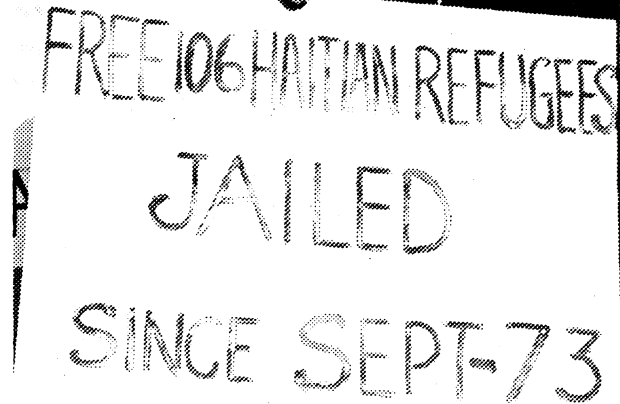 FREE 106 HAITIAN REFUGEES
JAILED
SINCE SEPT-73